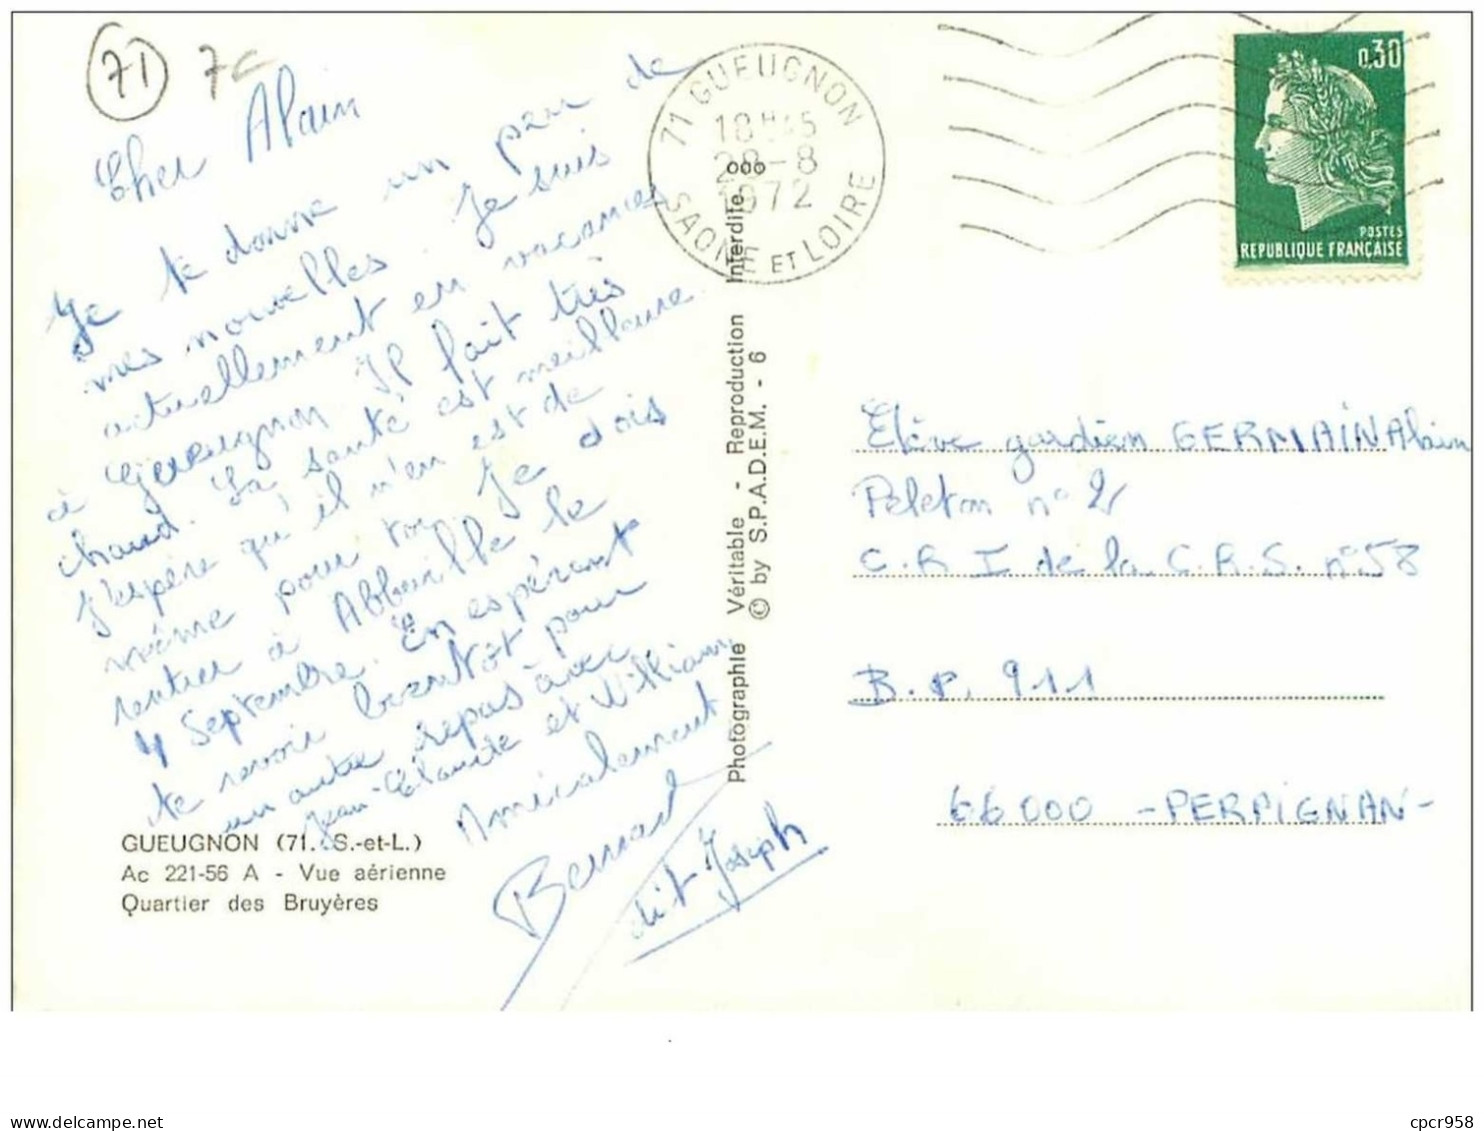 71 7c
Cher Alain
Je te donne un peu de
mes nouvelles. Je suis
actuellement en vacances
à Gueugnon Il fait très
chaud. La santé est meilleure.
J'espère qu'il n'en est de
même pour toi. Je dois
rentrer à Abbeville le
4 Septembre. En espérant
te revoir bientôt pour
un autre repas avec
Jean-Claude et William
Amicalement
Bernard
dit Joseph
GUEUGNON (71. S.-et-L.)
Ac 221-56 A - Vue aérienne
Quartier des Bruyères
Photographie Véritable - Reproduction Interdite
© by S.P.A.D.E.M. - 6
71 GUEUGNON
18H45
28-8
1972
SAONE ET LOIRE
0,30
POSTES
REPUBLIQUE FRANÇAISE
Elève gardien GERMAIN Alain
Peleton n° 2
C.R I de la C.R.S. n° 58
B.P. 911
66000 - PERPIGNAN -
cpcr958